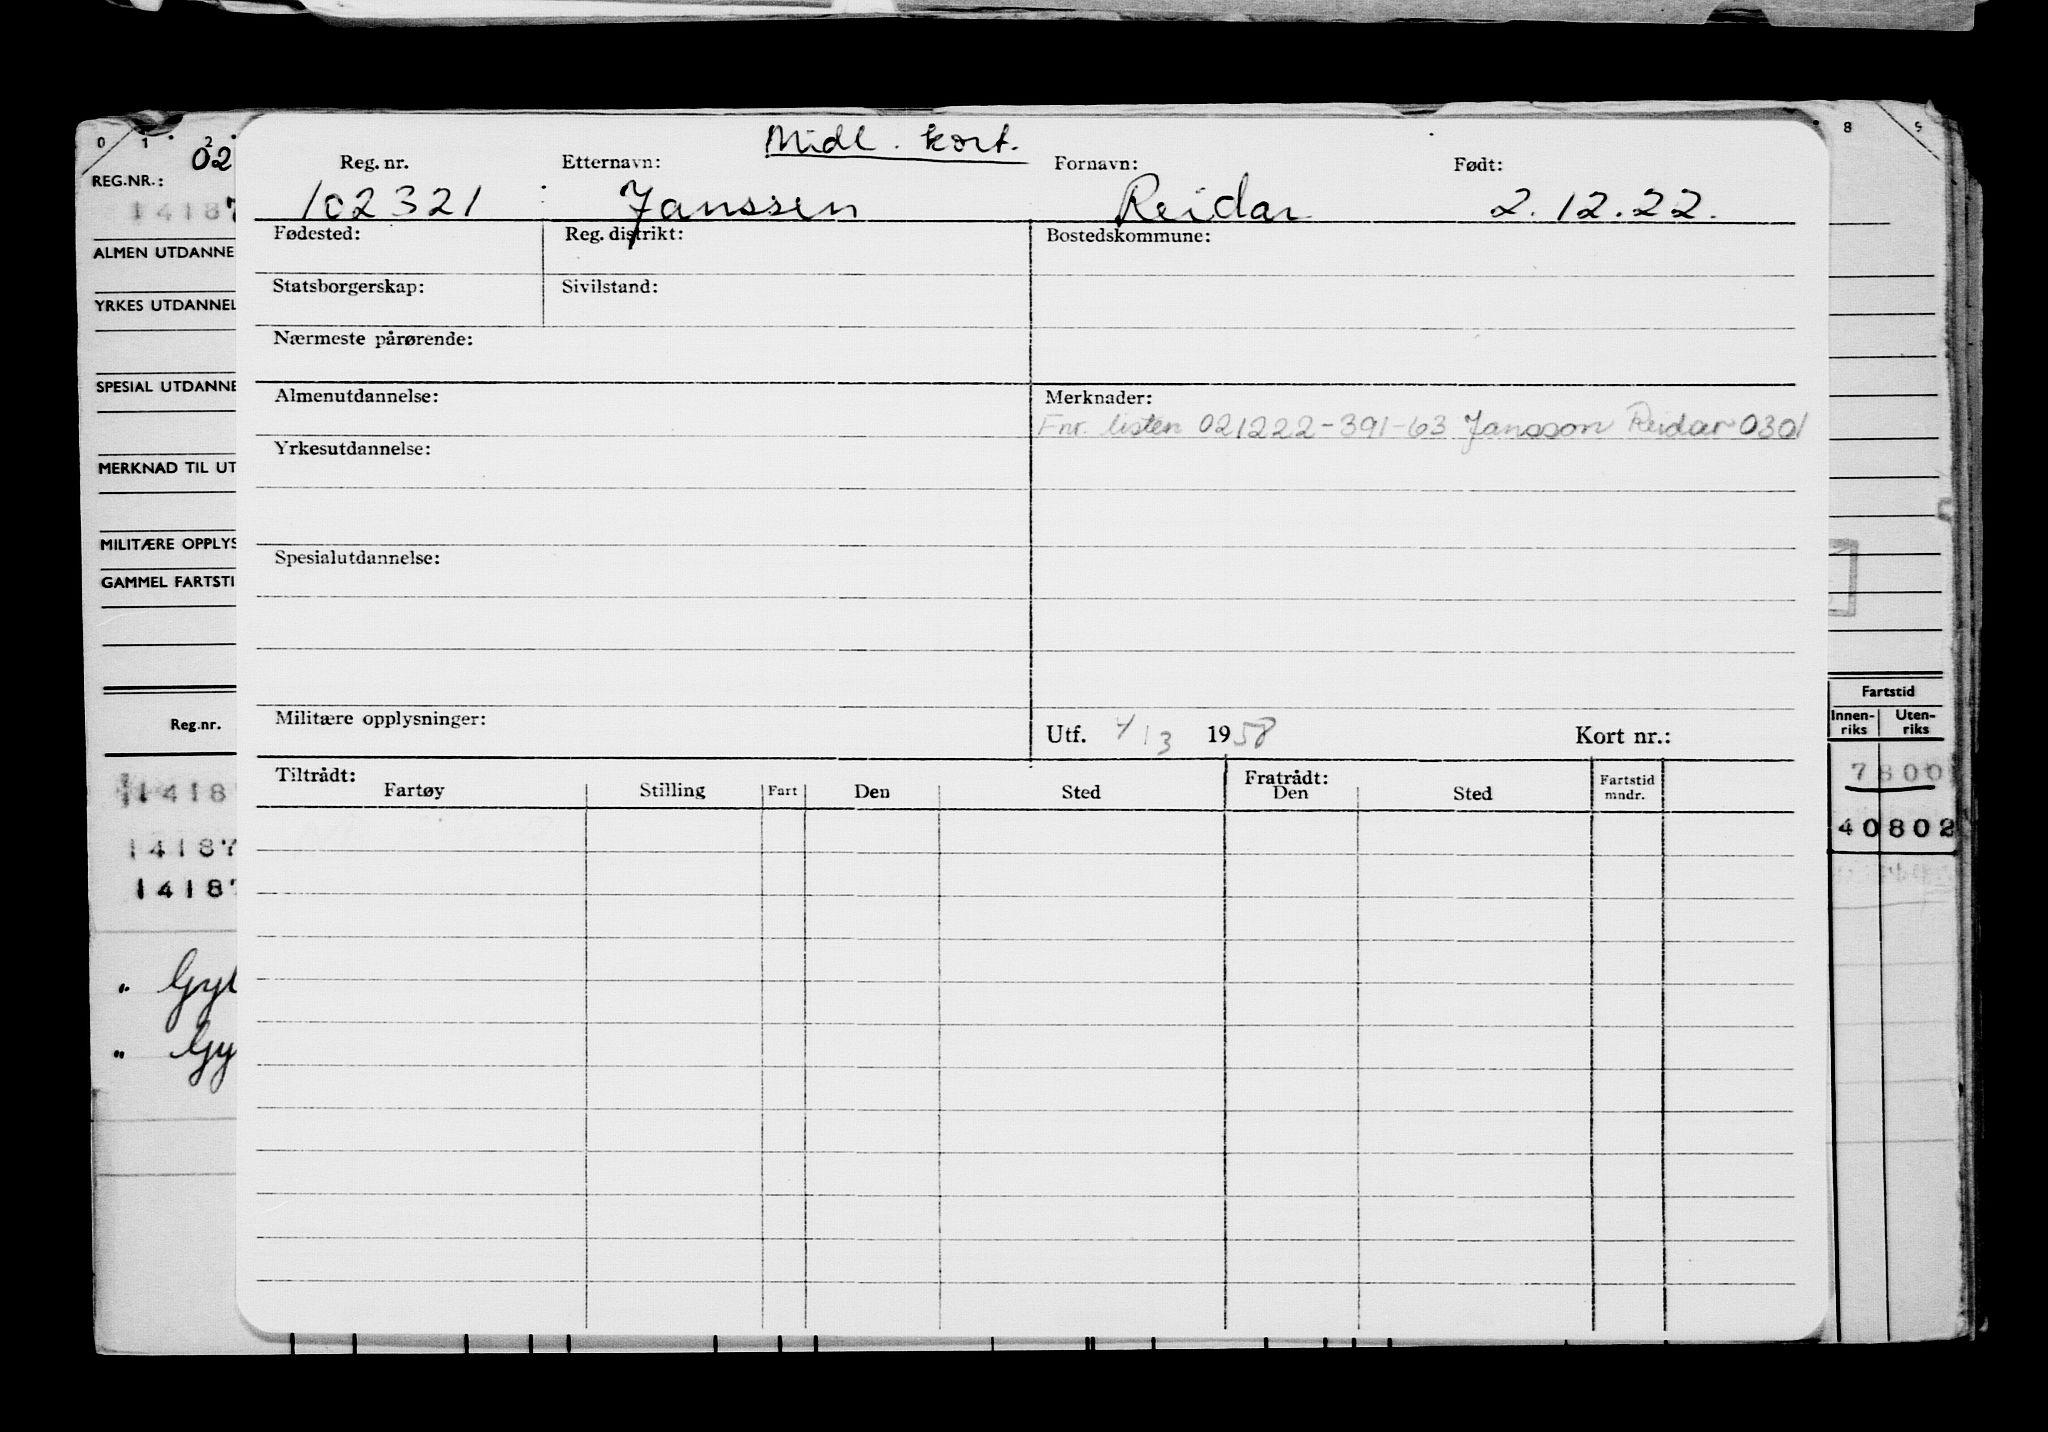 Midl. kort.
Reg. nr. Etternavn: Fornavn: Født:
102321 Janssen Reidar 2.12.22.
Fødested: Reg. distrikt: Bostedskommune:
Statsborgerskap: Sivilstand:
Nærmeste pårørende:
Almenutdannelse: Merknader:
Fnr. listen 021222-391-63 Jansson Reidar 0301
Yrkesutdannelse:
Spesialutdannelse:
Militære opplysninger: Utf. 4/3 1958 Kort nr.:
Tiltrådt: Fratrådt:
Fartøy Stilling Fart Den Sted Den Sted Fartstid mndr.
0 1 2
02
REG.NR.:
14187
ALMEN UTDANNE
YRKES UTDANNEL
SPESIAL UTDANNE
MERKNAD TIL UT
MILITÆRE OPPLYS
GAMMEL FARTSTI
Reg.nr.
14187
14187
14187
" Gyl
" Gy
8 9
Fartstid
Innenriks Utenriks
7800
40802